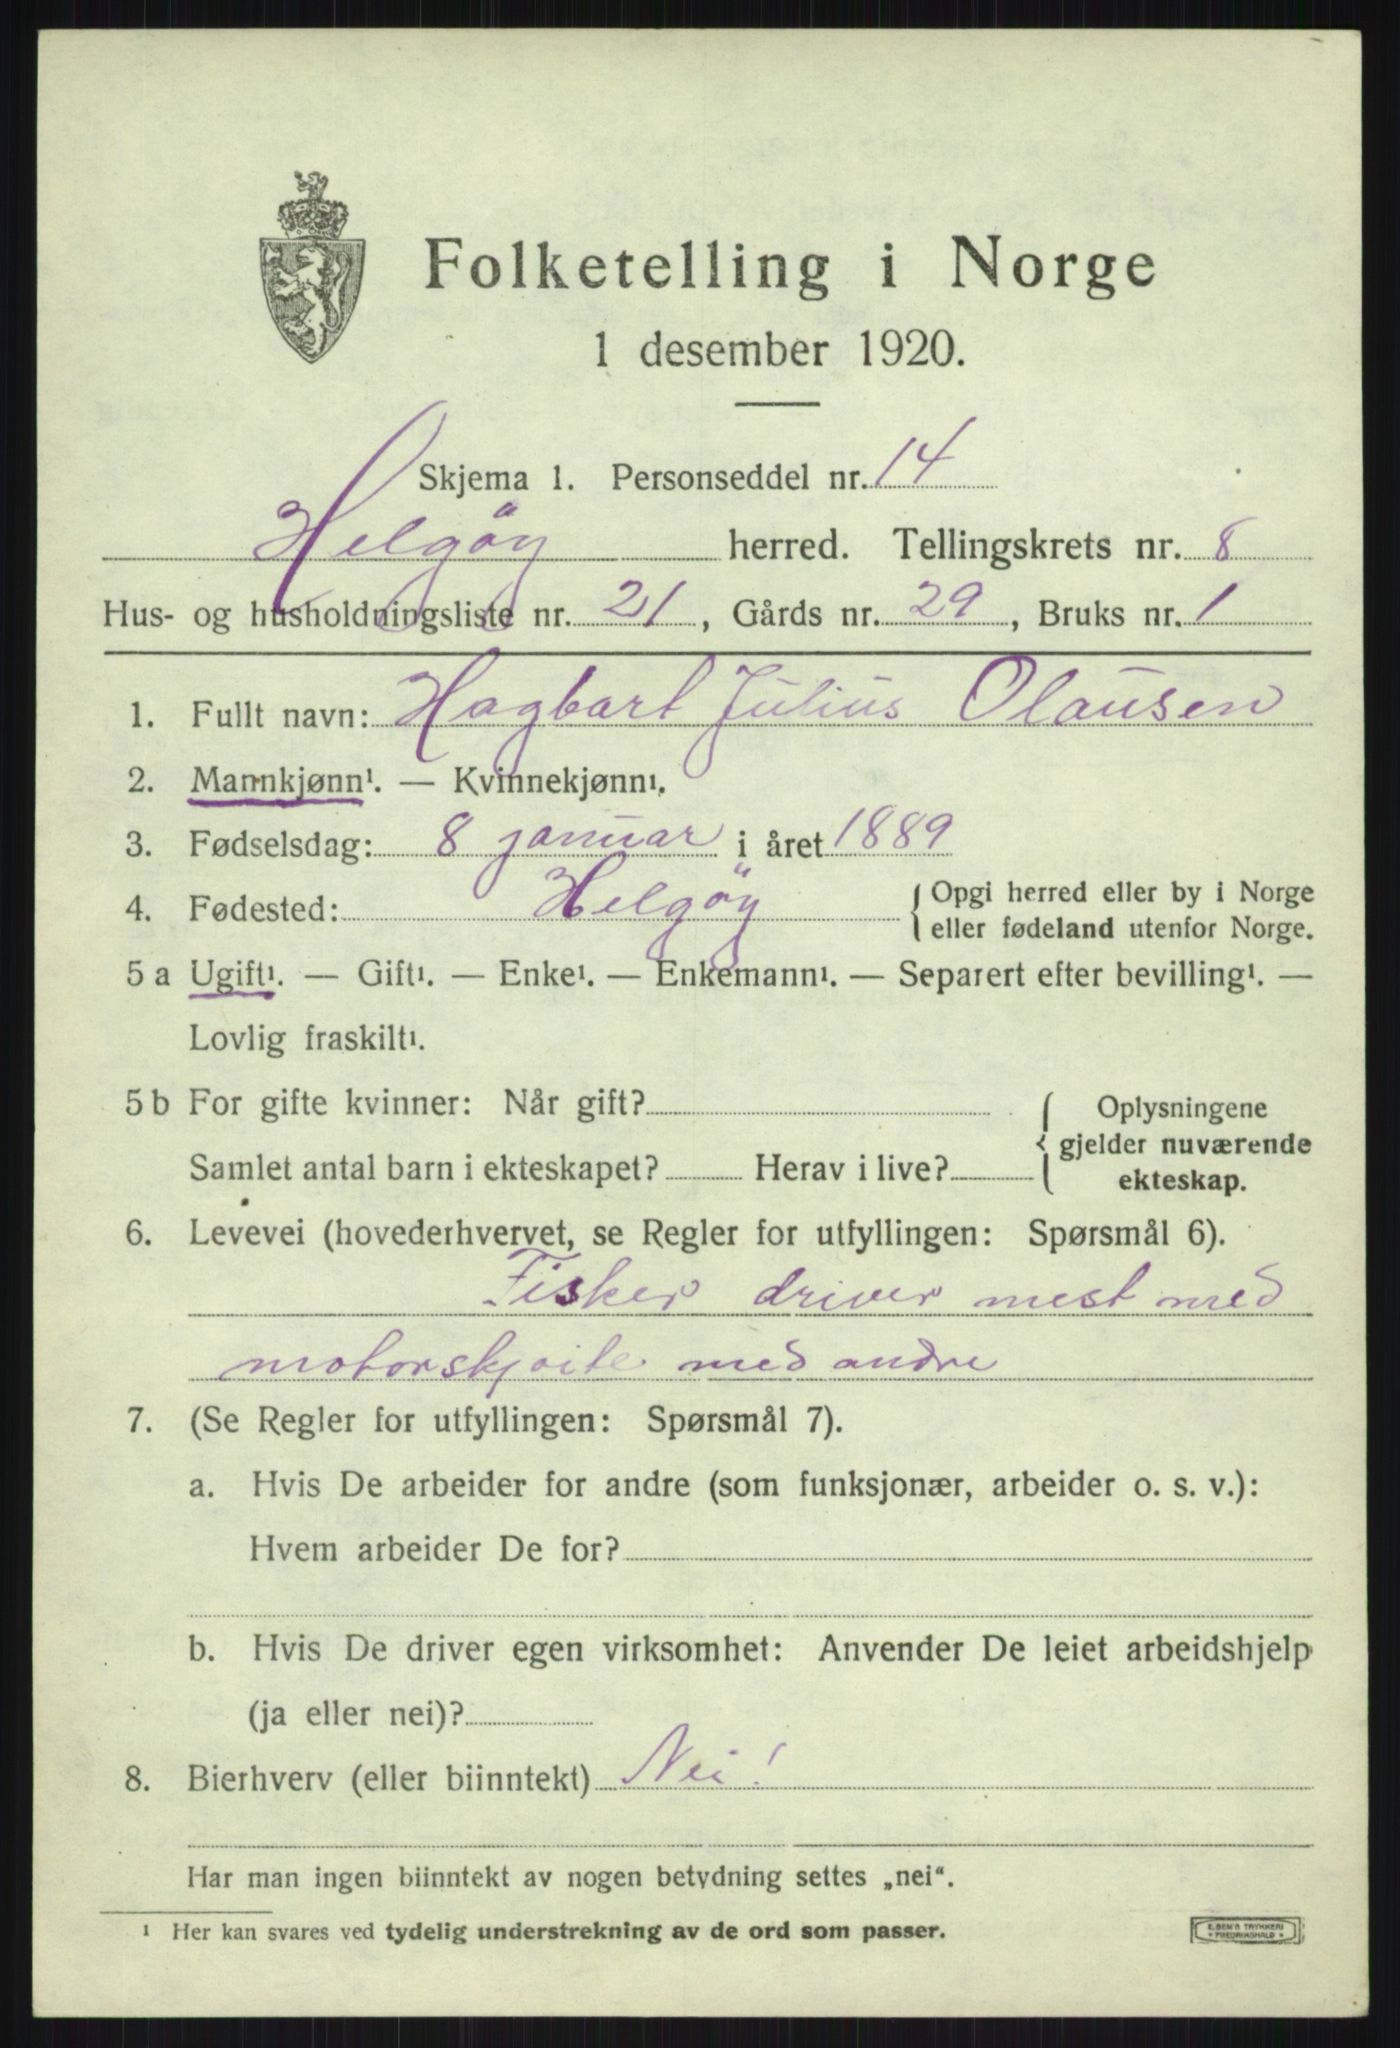 Folketelling i Norge
1 desember 1920.
Skjema 1. Personseddel nr. 14
Helgöy herred. Tellingskrets nr. 8
Hus- og husholdningsliste nr. 21, Gårds nr. 29, Bruks nr. 1
1. Fullt navn: Hagbart Julius Olausen
2. Mannkjønn¹. — Kvinnekjønn¹.
3. Fødselsdag: 8 januar i året 1889
4. Fødested: Helgöy { Opgi herred eller by i Norge
eller fødeland utenfor Norge.
5 a Ugift¹. — Gift¹. — Enke¹. — Enkemann¹. — Separert efter bevilling¹. —
Lovlig fraskilt¹.
5 b For gifte kvinner: Når gift? { Oplysningene
gjelder nuværende
Samlet antal barn i ekteskapet? Herav i live? ekteskap.
6. Levevei (hovederhvervet, se Regler for utfyllingen: Spørsmål 6).
Fisker driver mest med
motorskjoite med andre
7. (Se Regler for utfyllingen: Spørsmål 7).
a. Hvis De arbeider for andre (som funksjonær, arbeider o. s. v.):
Hvem arbeider De for?
b. Hvis De driver egen virksomhet: Anvender De leiet arbeidshjelp
(ja eller nei)?
8. Bierhverv (eller biinntekt) Nei!
Har man ingen biinntekt av nogen betydning settes „nei“.
¹ Her kan svares ved tydelig understrekning av de ord som passer.
E. SEM'S TRYKKERI
* FREDRIKSHALD *